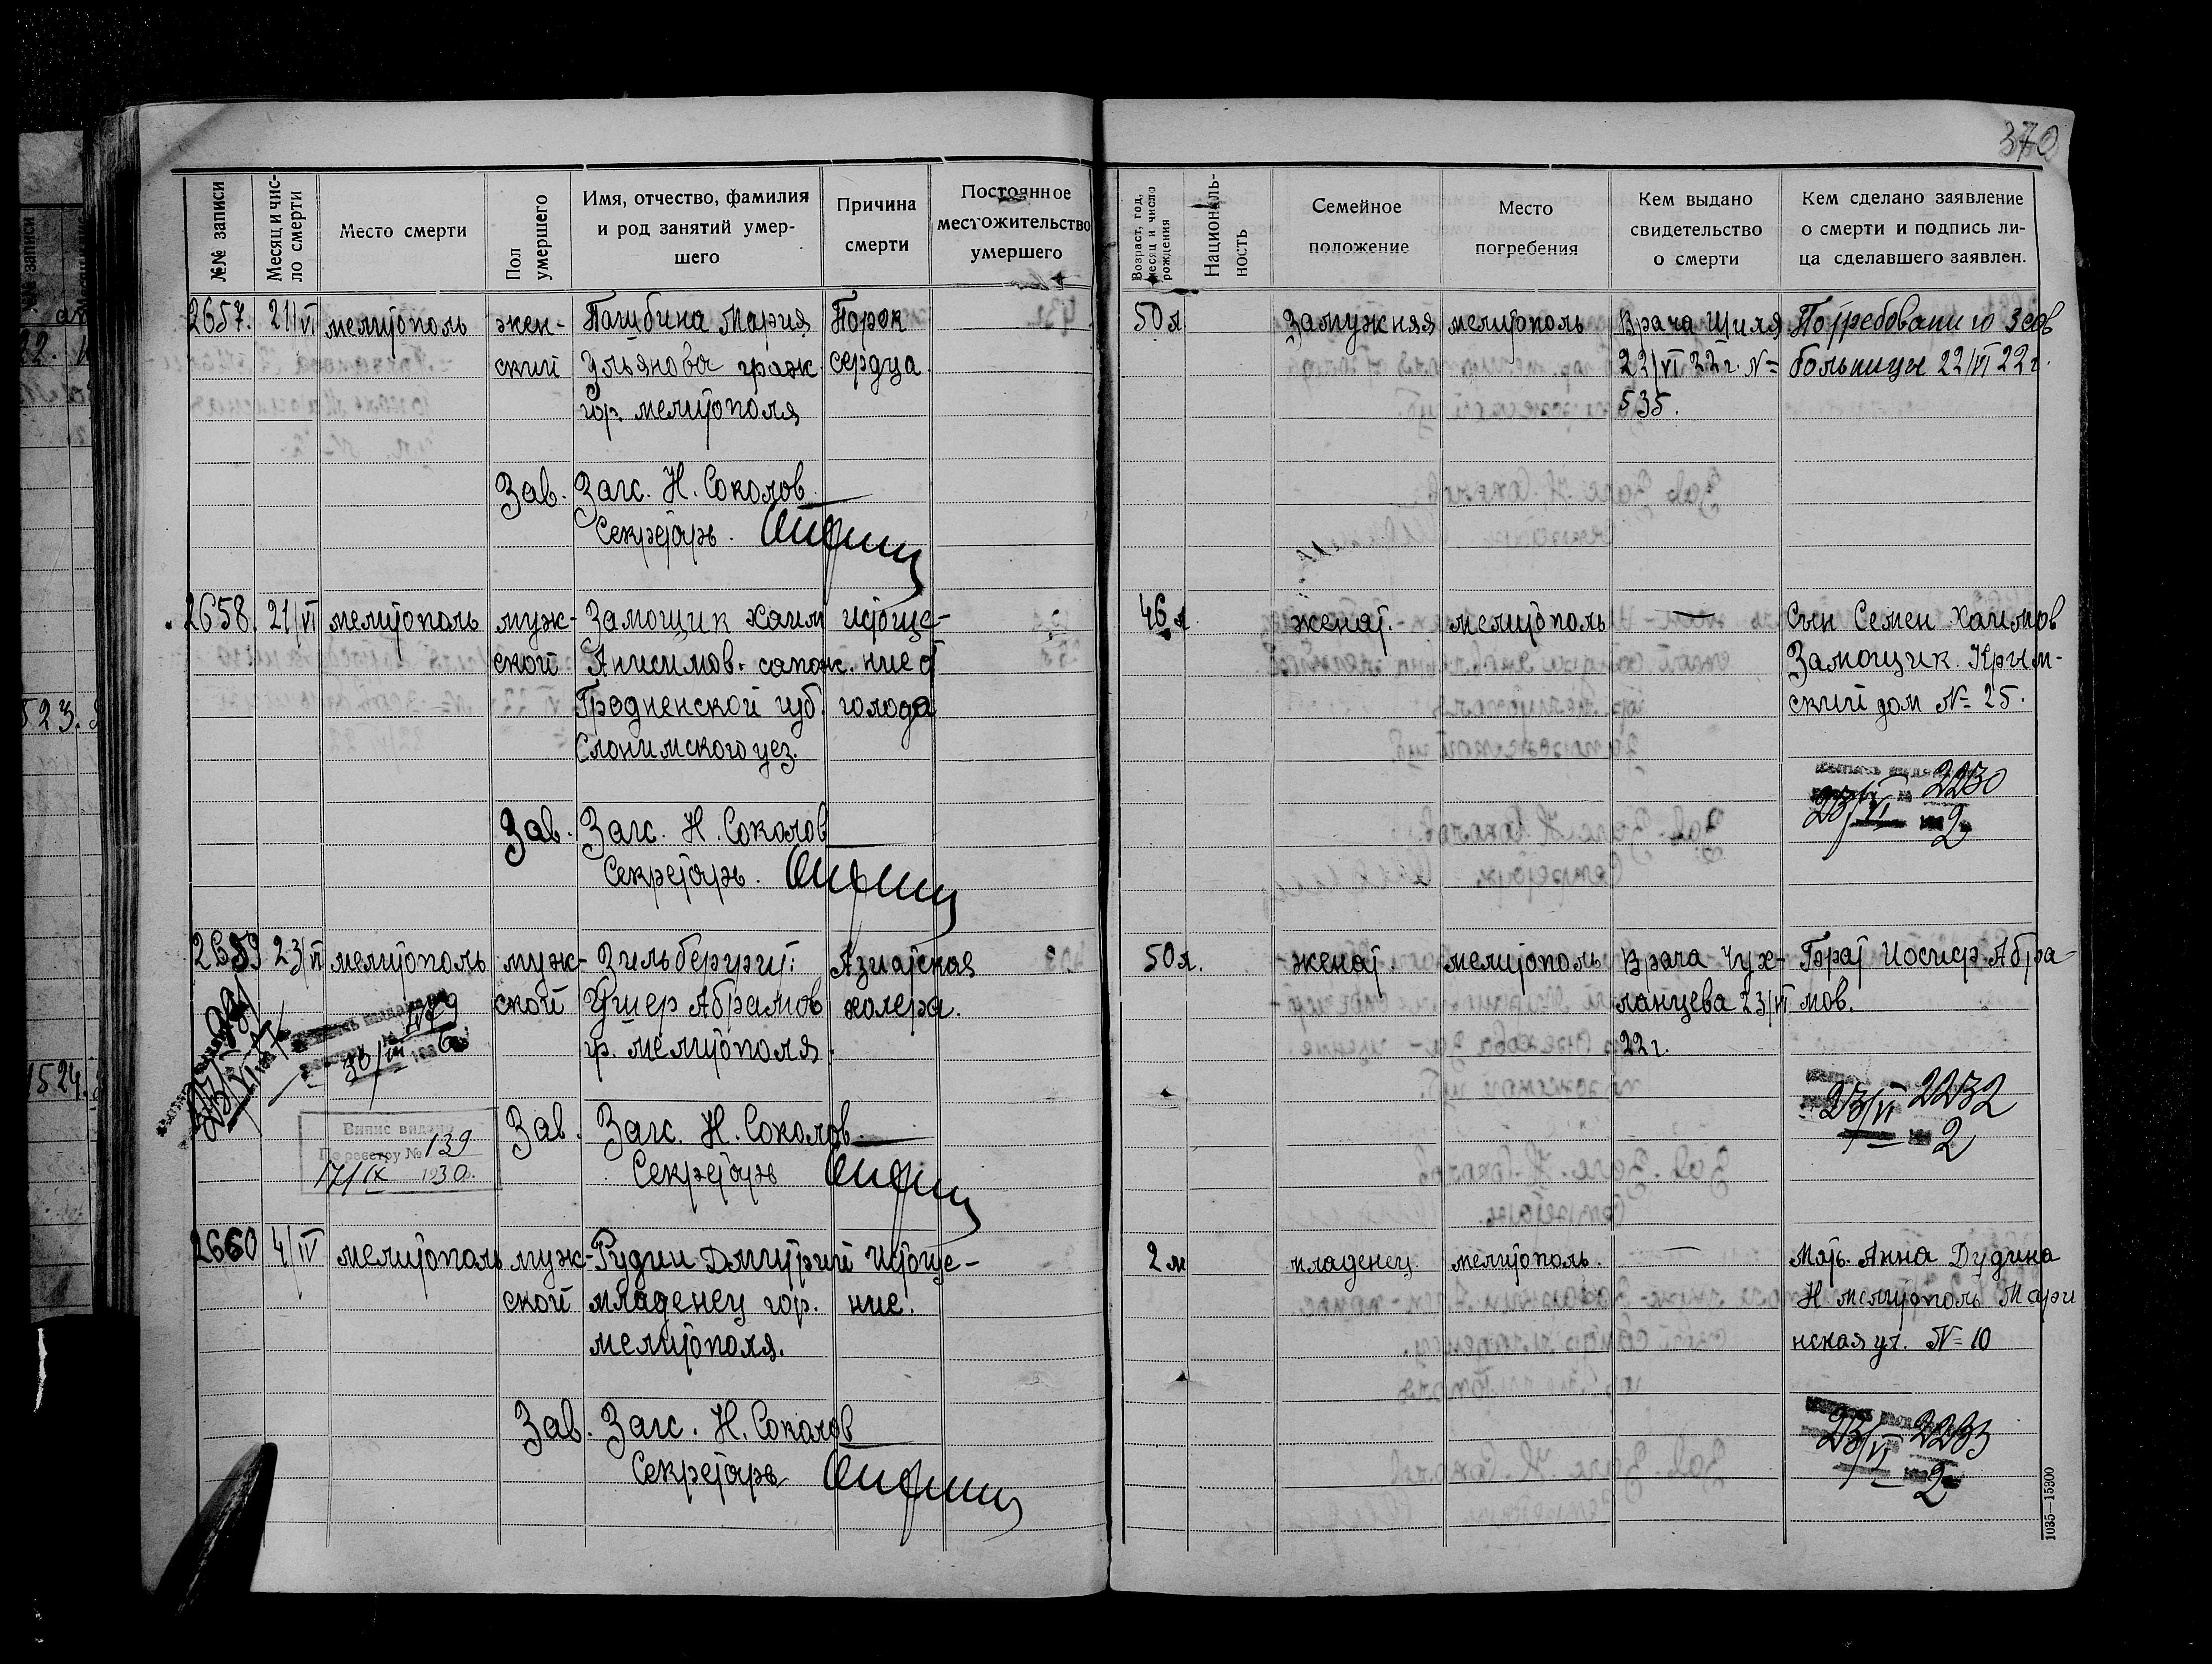 370
№№ записи
Месяц и чис-
ло смерти
Место смерти
Пол
умершего
Имя, отчество, фамилия
и род занятий умер-
шего
Причина
смерти
Постоянное
местожительство
умершего
Возраст, год,
месяц и число
рождения
Националь-
ность
Семейное
положение
Место
погребения
Кем выдано
свидетельство
о смерти
Кем сделано заявление
о смерти и подпись ли-
ца сделавшего заявлен.
2657. 21/VI мелитополь жен- Мария Порок 50 л замужняя мелитополь Врача Шиля По требованию 3 сов
ский Ульянова граж сердца 22/VI 22 г. № больницы 22/VI 22 г.
гор. мелитополя 535.
Зав. Загс. Н. Соколов
Секретарь.
2658. 21/VI мелитополь муж- Замощик Хаим истоще- 46 л женат. мелитополь — Сын Семен Хаимов
ской Анисимов. сапож. ние от Замощик. Крым-
Гродненской губ. голода ский дом № 25.
Слонимского уез.
2230
23/VI 2
Зав. Загс. Н. Соколов
Секретарь.
2659 23/VI мелитополь муж- Зильбершт: Азиатская 50 л. женат. мелитополь Врача Чух- Брат Иосиф Абра-
ской Ушер Абрамов холера. ланцева 23/VI мов.
гр. мелитополя. 22 г.
2232
23/VI 2
Випис видано
По реєстру № 139
17/IX 1930.
Зав. Загс. Н. Соколов
Секретарь
2660 4/IV мелитополь муж- Дмитрий истоще- 2 м младенец мелитополь. — Мать Анна Дудина
ской младенец гор. ние. Н мелитополь Мари
мелитополя. нская ул. № 10
2233
23/VI 2
Зав. Загс. Н. Соколов
Секретарь
1035—15300